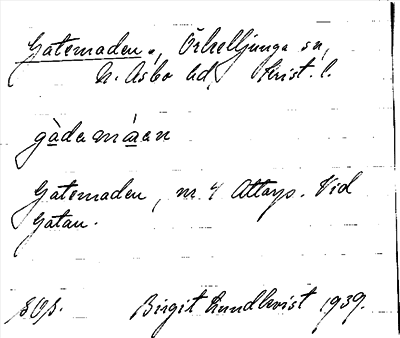 Gatemaden, Örkelljunga sn,
N. Åsbo hd, Krist. l.
gàdamáen
Gatemaden, nr 4 Attarp. Vid
Gatan.
Birgit Lundkvist 1939.